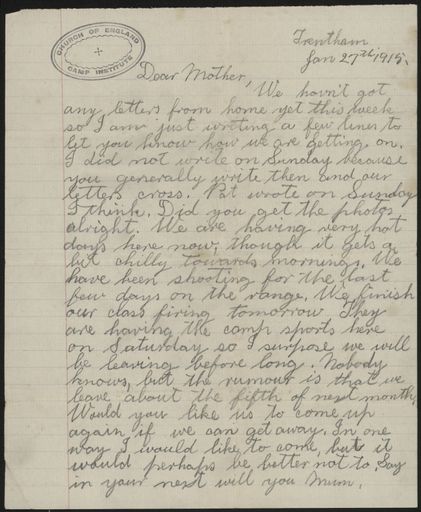 CHURCH OF ENGLAND
CAMP INSTITUTE
Trentham
Jan 27th 1915.
Dear Mother,
We havn't got
any letters from home yet this week
so I am just writing a few lines to
let you know how we are getting on.
I did not write on Sunday because
you generally write then and our
letters cross. Pat wrote on Sunday
I think. Did you get the photos
alright. We are having very hot
days here now, though it gets a
bit chilly towards mornings. We
have been shooting for the last
few days on the range. We finish
our class firing tomorrow They
are having the camp sports here
on Saturday so I surpose we will
be leaving before long. Nobody
knows, but the rumour is that we
leave about the fifth of next month.
Would you like us to come up
again if we can get away. In one
way I would like to come, but it
would perhaps be better not to. Say
in your next will you Mum.